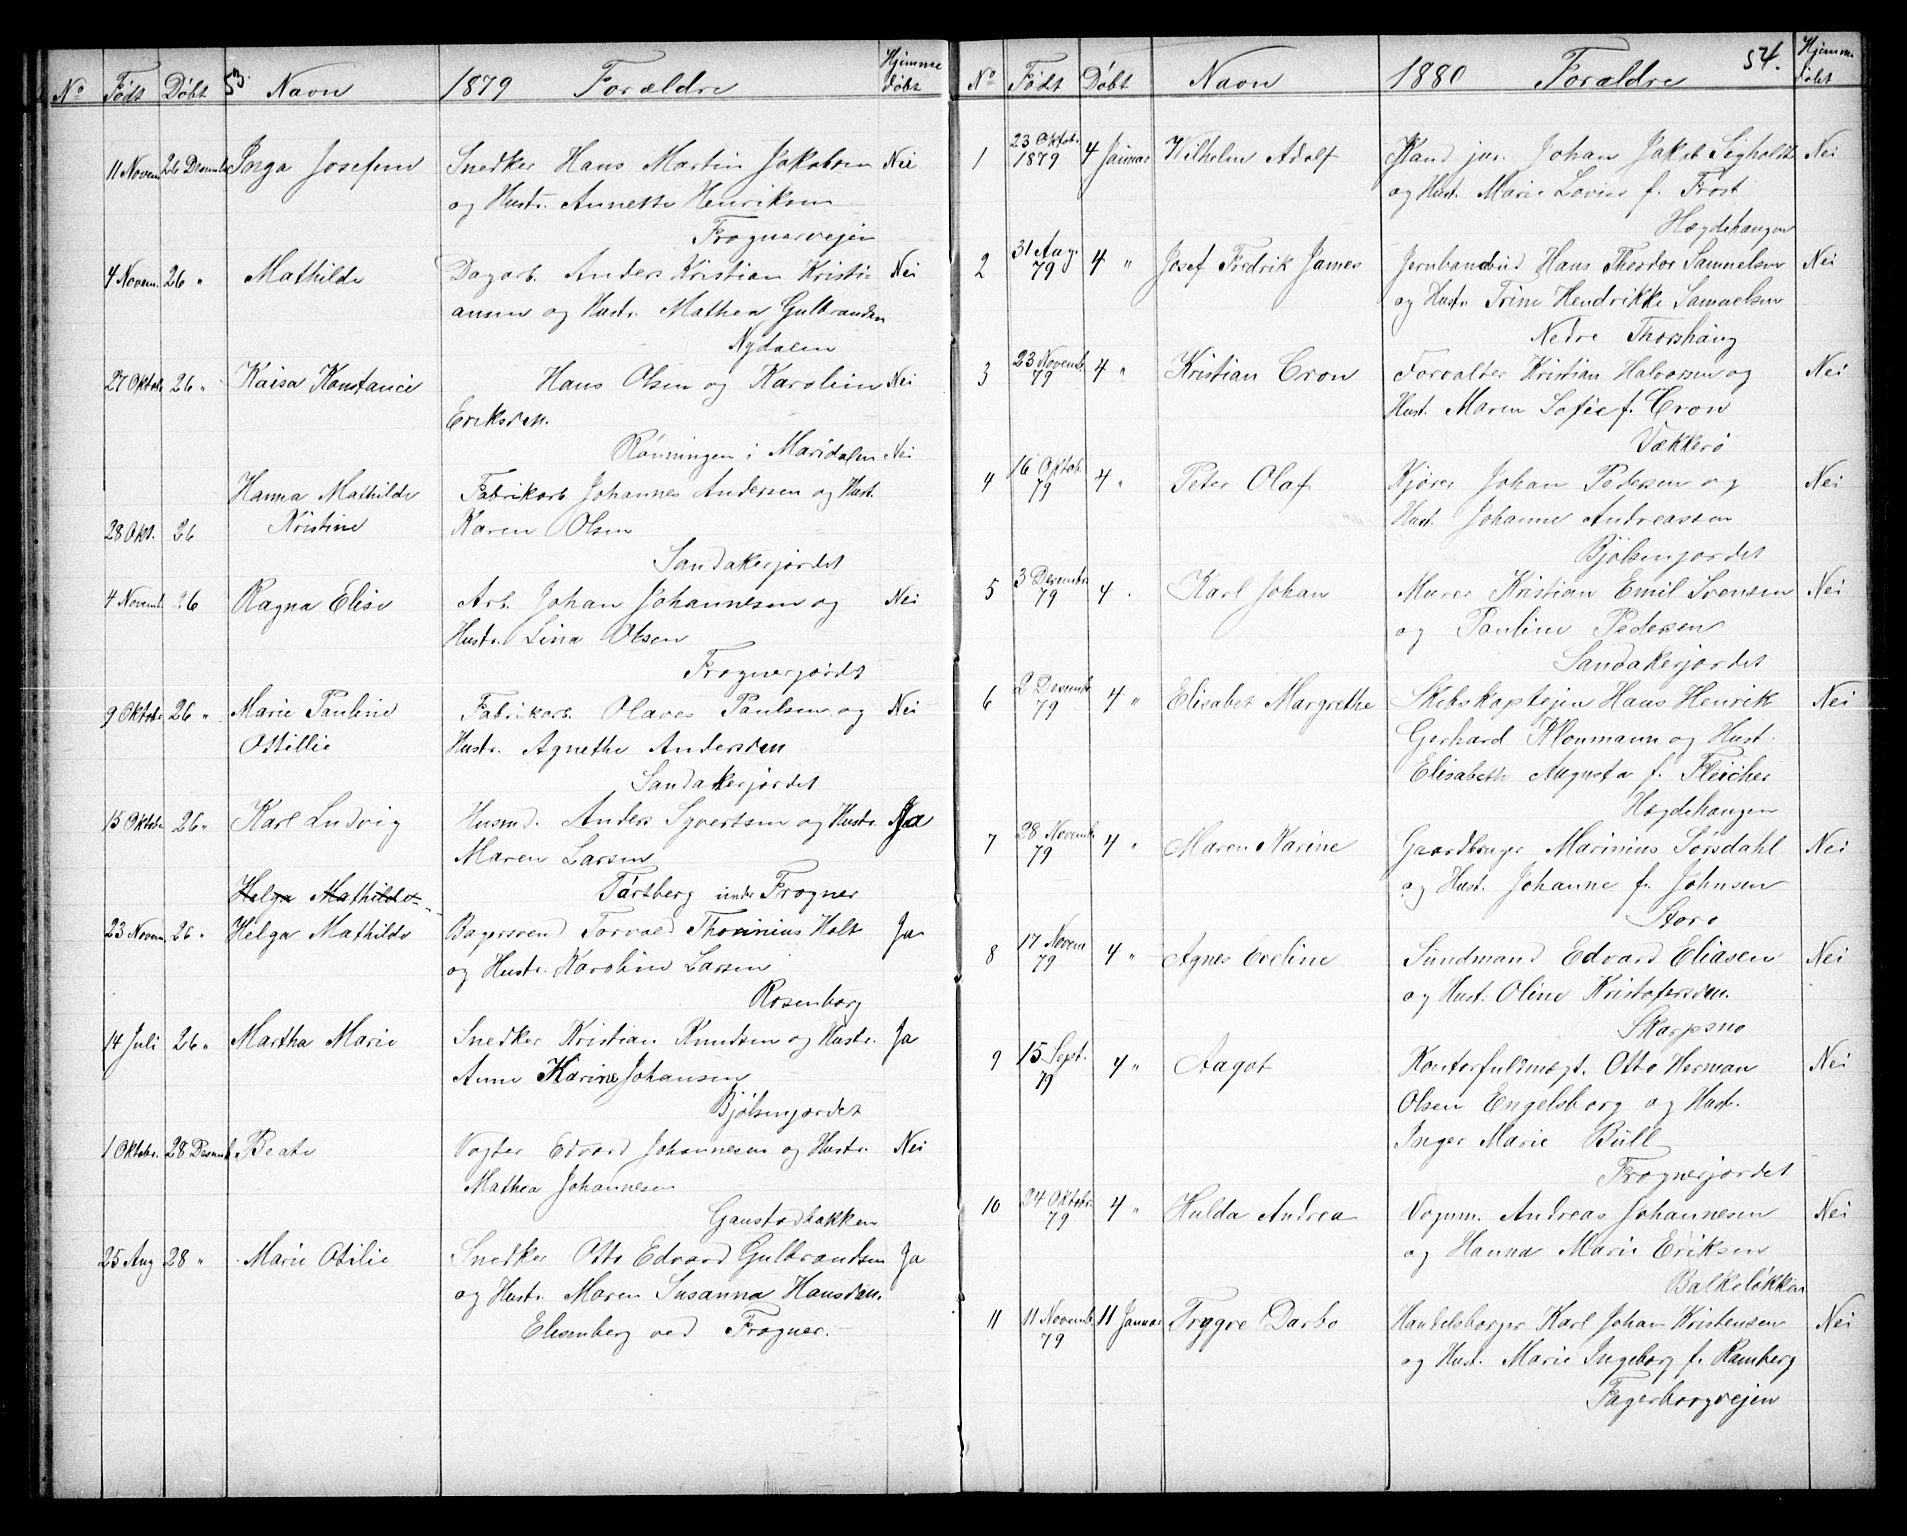 53.
No Født Døbt Navn 1879 Forældre Hjemme døbt
11 Novem. 26 Desember Inga Josefine Snedker Hans Martin Jakobsen Nei
og Hustr. Annette Henriksen
Frognerveien
4 Novem. 26 " Mathilde Dagarb. Anders Kristian Kristi- Nei
ansen og Hustr. Mathea Gulbrandsen
Nydalen
27 Oktobr. 26 " Kaisa Konstance Hans Olsen og Karoline Nei
Eriksdatter.
Rönningen i Maridalen Nei
Hanna Mathilde Fabrikarb. Johannes Andersen og Hust.
28 Okt. 26 Kristine Karen Olsen
Sandakerjordet
4 Novemb. 26 Ragna Elise Arb. Johan Johannesen og Nei
Hustr. Lina Olsen
Frognerjordet
9 Oktobr. 26 " Marie Pauline Fabrikarb. Olaves Paulsen og Nei
Ottillie Hustr. Agnethe Andersdatter
Sandakerjordet
15 Oktobr 26 " Karl Ludvig Husmd. Anders Syvertsen og Hustr. Ja
Maren Larsen
Helga Mathilde Tårtberg under Frogner
23 Novem. 26 " Helga Mathilde Bagersvend Torvald Thorinius Holt Ja
og Hustr. Karoline Larsen
Rosenborg
14 Juli 26 " Martha Marie Snedker Kristian Knudsen og Hustr. Ja
Anne Karine Johansen
Bjölsenjordet
1 Oktobr. 28 Desemb. Beate Vogter Edvard Johannesen og Hustr. Nei
Mathea Johannesen
Gaustadbakken
25 Aug 28 " Marie Otilie Snedker Otto Edvard Gulbrandsen Ja
og Hustr. Maren Susanna Hansdatter.
Elisenberg ved Frogner.
54.
No Født Döbt Navn 1880 Forældre Hjemme döbt
1 23 Oktobr. 1879 4 Januar Wilhelm Adolf Kand jur. Johan Jakob Sigholdt Nei
og Hust. Marie Lovise f. Frost
Hægdehaugen
2 31 Aug. 79 4 " Josef Fredrik James Jernbanebud Hans Theodor Samuelsen Nei
og Hustr. Trine Hendrikke Samuelsen
Nedre Thorshaug
3 23 Novemb. 79 4 " Kristian Cron Forvalter Kristian Halvorsen og Nei
Hust. Maren Sofie f. Cron
Vækkerö
4 16 Oktob. 79 4 " Peter Olaf Kjörer Johan Pedersen og Nei
Hust. Johanne Andreassen
Bjölsenjordet
5 3 Desembr. 79 4 " Karl Johan Murer Kristian Emil Svensen Nei
og Pauline Pedersen
Sandakerjordet
6 2 Desemb. 79 4 " Elisabet Margrethe Skibskaptejn Hans Henrik Nei
Gerhard Kloumann og Hust.
Elisabeth Augusta f. Fleicher
Hægdehaugen
7 28 Novemb. 79 4 " Maren Karine Gaardbruger Marinius Sörsdahl Nei
og Hust. Johanne f. Johnsen
Storo
8 17 Novem 79 4 " Agnes Eveline Sundmand Edvard Eliasen Nei
og Hust. Oline Kristofersdatter.
Skarpsno
9 15 Sept. 79 4 " Aagot Kontorfuldmægt. Otto Herman Nei
Olsen Engelsborg og Hust.
Inger Marie Bull
Frognerjordet
10 24 Oktobr. 79 4 " Hulda Andrea Vognm. Andreas Johannesen Nei
og Hanna Marie Eriksen
Balkelökken
11 11 Novemb. 79 11 Januar Trygve Darbo Handelsborger Karl Johan Kristensen Nei
og Hust. Marie Ingeborg f. Ramberg
Fagerborgvejen